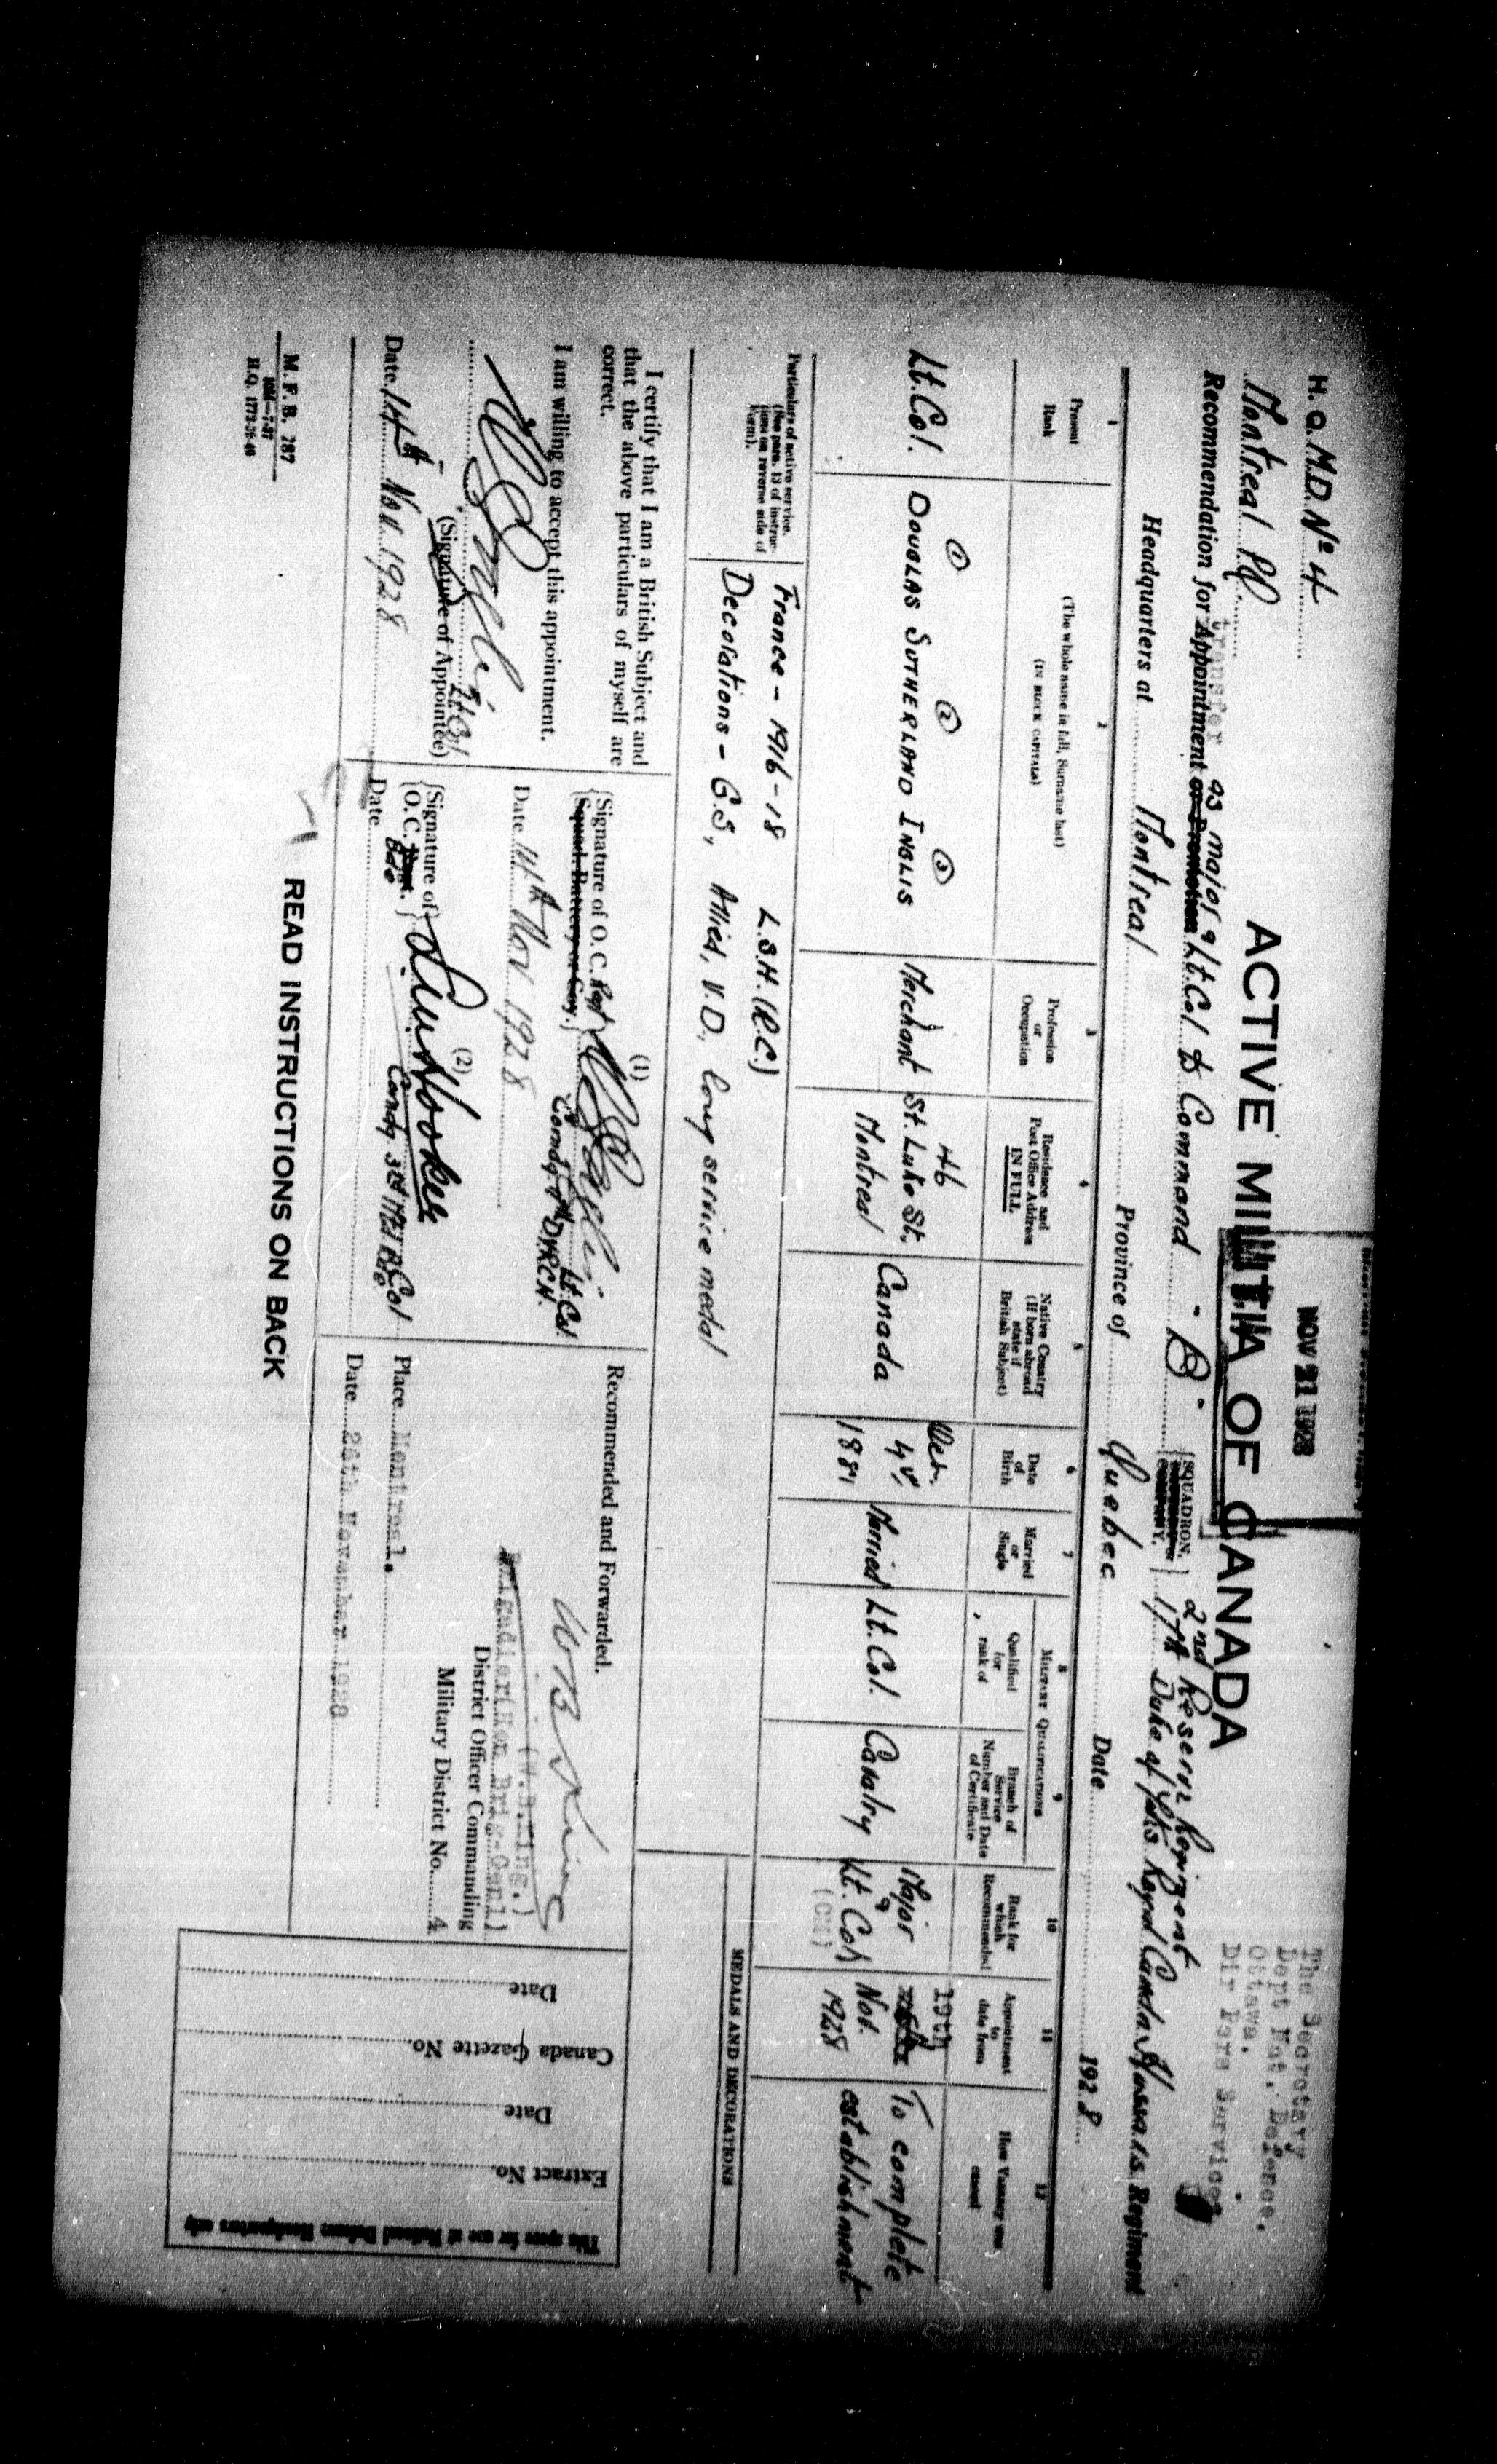 H. Q. M. D. No 4
Montreal PQ.
NOV 21 1928
The Secretary
Dept Nat. Defence.
Ottawa.
Dir Pers Services
ACTIVE MILITIA OF CANADA
transfer as major & Lt. Col to Command
Recommendation for Appointment or Promotion
"B" SQUADRON, 2nd Reserve Regiment
17th Duke of York's Royal Canada Hussars Regiment
Headquarters at Montreal Province of Quebec Date 1928
1 2 3 4 5 6 7 8 MILITARY QUALIFICATIONS 9 10 11 12
Present Rank
(The whole name in full, Surname last)
(IN BLOCK CAPITALS)
Profession or Occupation
Residence and Post Office Address IN FULL
Native Country (If born abroad state if British Subject)
Date of Birth
Married or Single
Qualified for rank of
Branch of Service Number and Date of Certificate
Rank for which Recommended
Appointment to date from
How Vacancy was caused
Lt. Col.
① ② ③
DOUGLAS SUTHERLAND INGLIS
Merchant
46
St. Luke St.
Montreal
Canada
1881
Married
Lt. Col.
Cavalry
Major
&
Lt. Col
19th
Nov.
1928
To complete
establishment
Particulars of active service.
(See para. 13 of instructions on reverse side of form).
France - 1916-18 L.S.H. (R.C.)
Decorations - G.S, Allied, V.D., long service medal
MEDALS AND DECORATIONS
I certify that I am a British Subject and
that the above particulars of myself are
correct.
I am willing to accept this appointment.
Lt Col
(Signature of Appointee)
Date 14th Nov. 1928
(1)
Signature of O. C. Regt
Squad. Battery or Coy.
Lt. Col.
Comdg. DYRCH.
Date 14th Nov 1928
(2)
Signature of
O. C. Regt.
Bde
Hooker
Col
Comdg 3rd Mtd Bde
Date
Recommended and Forwarded.
W B King
(W.B.King.)
Brigadier(Hon Brig-Genl)
District Officer Commanding
Military District No. 4
Place Montreal.
Date 20th November 1928
Date
Canada Gazette No.
Date
Extract No.
This space for use at National Defence Headquarters only
M. F. B. 287
10M-7-27
H.Q. 1772-39-40
READ INSTRUCTIONS ON BACK